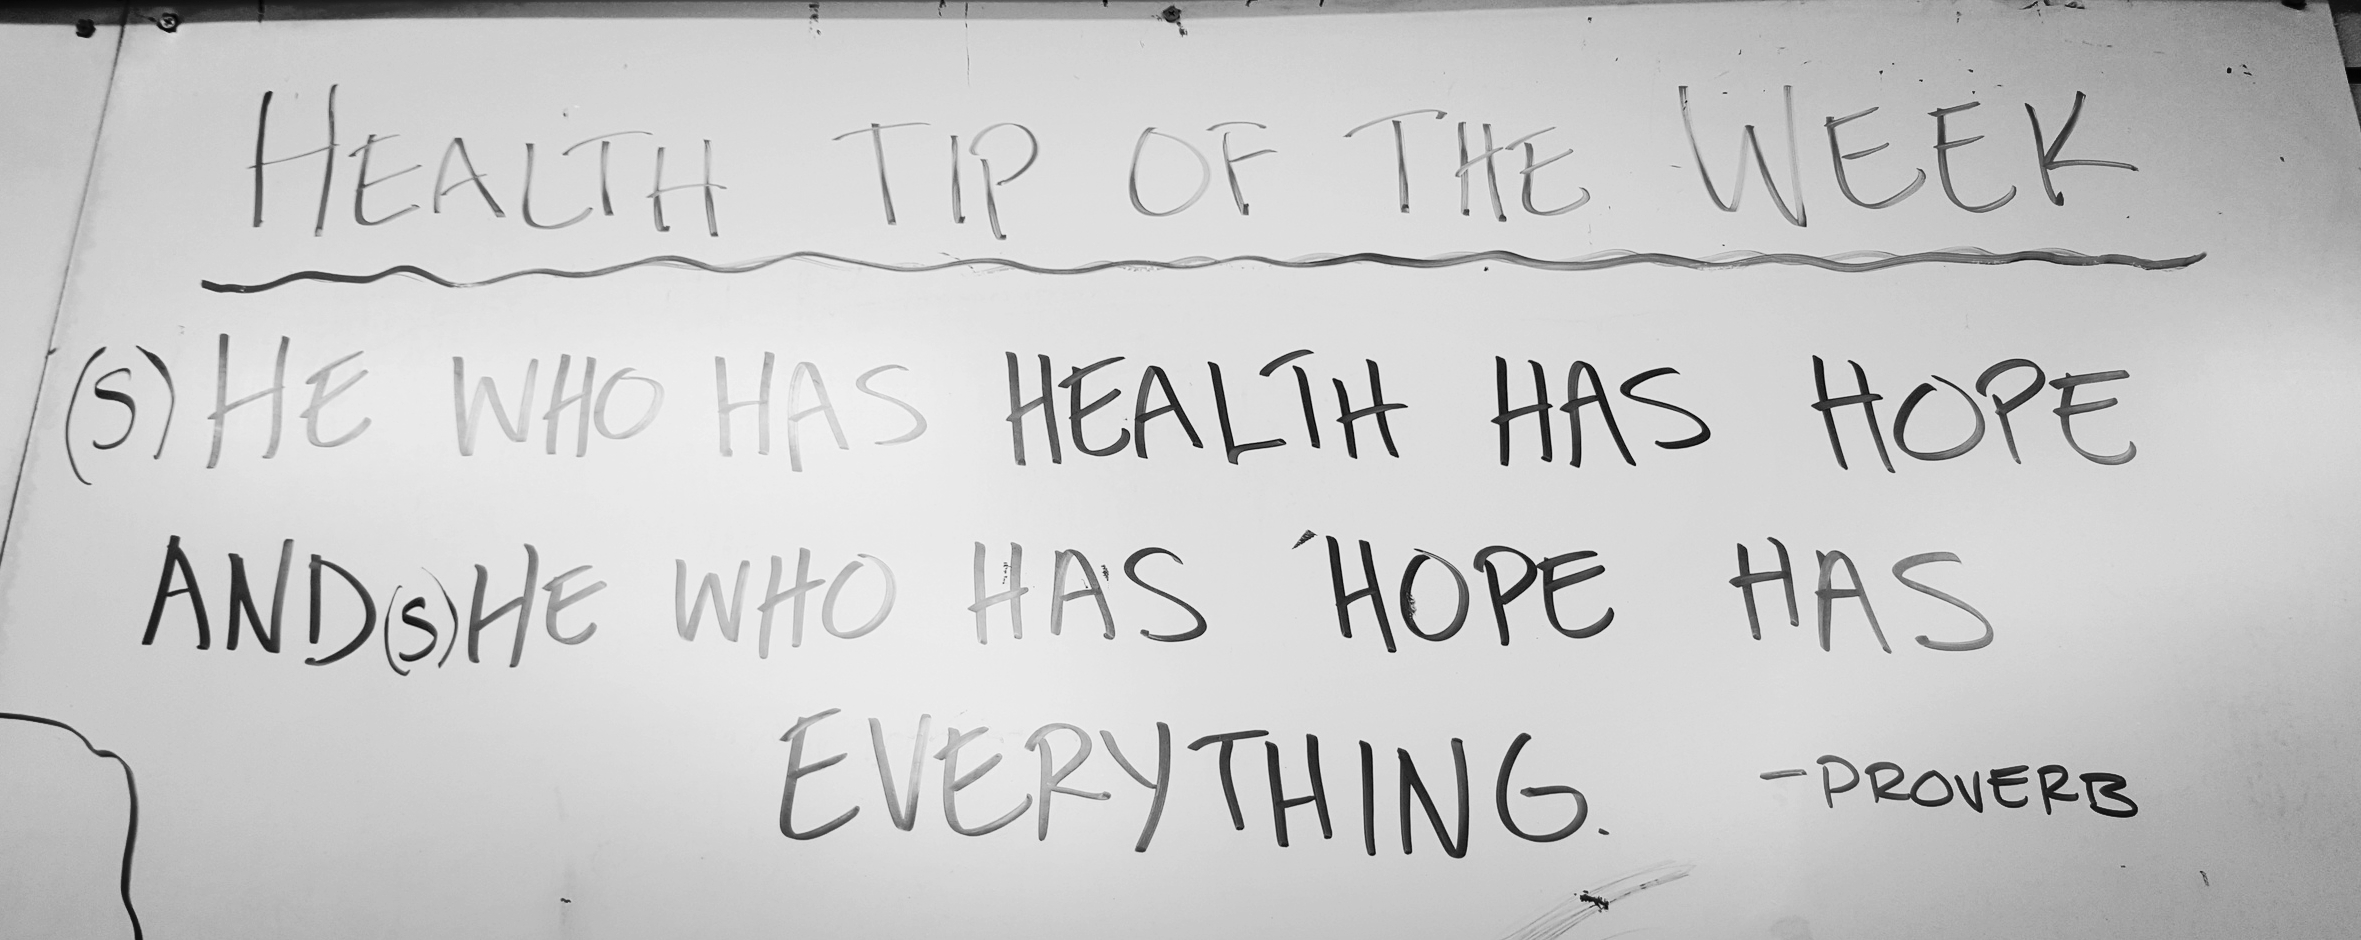 HEALTH TIP OF THE WEEK
(S)HE WHO HAS HEALTH HAS HOPE
AND(S)HE WHO HAS HOPE HAS
EVERYTHING. -PROVERB